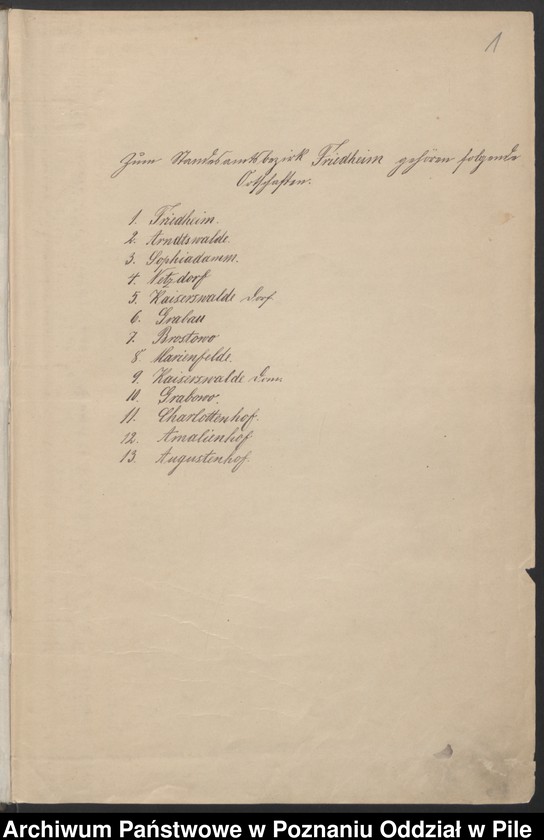 1
Zum Standesamtsbezirk Friedheim gehören folgende
Ortschaften.
1. Friedheim.
2. Arndtswalde.
3. Sophiadamm.
4. Netzdorf
5. Kaiserswalde Dorf.
6. Grabau
7. Brostowo
8. Marienfelde.
9. Kaiserswalde Dom.
10. Grabowo.
11. Charlottenhof.
12. Amalienhof
13. Augustenhof.
Archiwum Państwowe w Poznaniu Oddział w Pile